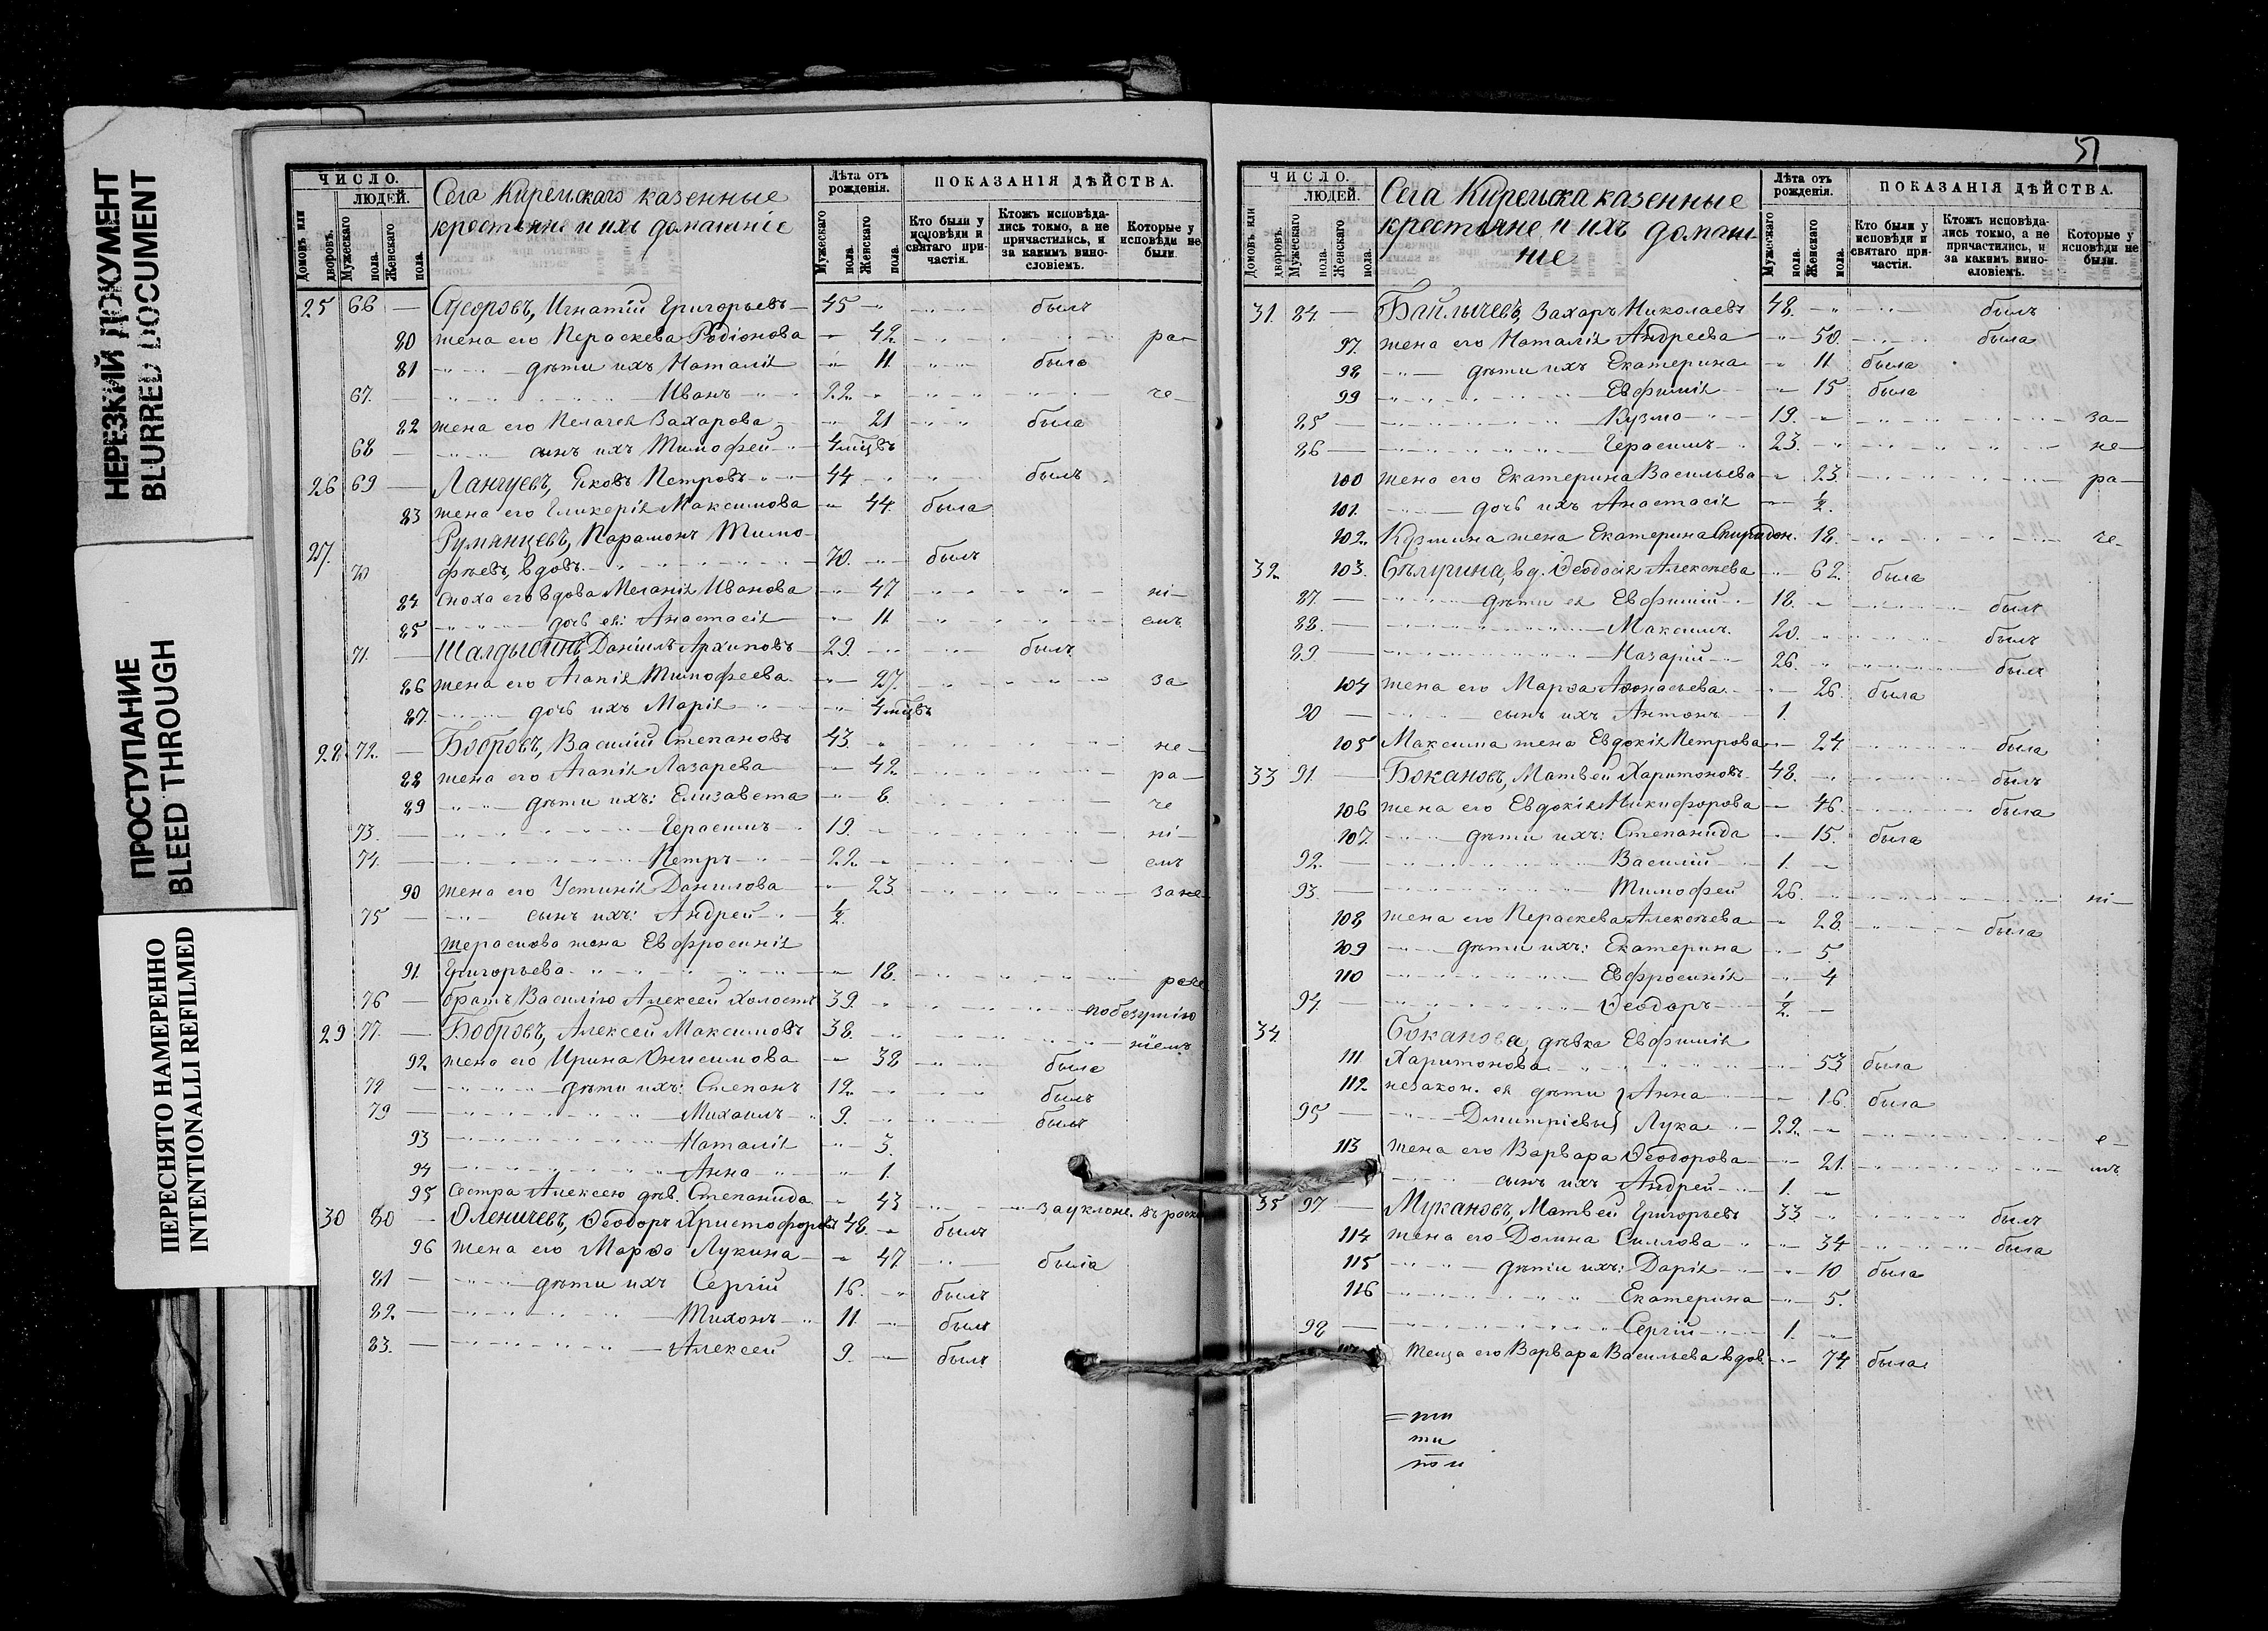 НЕРЕЗКИЙ ДОКУМЕНТ
BLURRED DOCUMENT
ПРОСТУПАНИЕ
BLEED THROUGH
ПЕРЕСНЯТО НАМЕРЕННО
INTENTIONALLI REFILMED
ЧИСЛО.
ЛЮДЕЙ.
Домовъ или дворовъ.
Мужескаго пола.
Женскаго пола.
Села Кирейскаго казенные
крестьяне и ихъ домашніе
Лѣта отъ рожденія.
Мужескаго пола.
Женскаго пола.
ПОКАЗАНІЯ ДѢЙСТВА.
Кто были у исповѣди и святаго причастія.
Ктожъ исповѣдались токмо, а не причастились, и за какимъ винословіемъ.
Которые у исповѣди не были.
25 66 — Игнатій Григорьевъ — 45 былъ
80 жена его Пераскева Родіонова — 42 ра-
81 дѣти ихъ Наталія — 11 была
67. Иванъ 22 че-
82 жена его Пелагея Захарова 21 была
68 сынъ ихъ Тимофей 4 мцвъ
26 69 — Лангуевъ, Яковъ Петровъ 44 былъ
83 жена его Гликерія Максимова — 44 была
27. Румянцевъ, Парамонъ Тимо-
70 фѣевъ, вдовъ 70. былъ
84 сноха его вдова Меланія Иванова 47 ні-
85 дочь ея: Анастасія — 11 емъ
71. — Шалдыбинъ Даніилъ Архиповъ — 29. былъ
86 жена его Агапія Тимофеева 27. за
87. дочь ихъ Марія 4 мцвъ
28. 72. — Бобровъ, Василій Степановъ 43. не-
88 жена его Агапія Лазарева — 42 ра-
89 дѣти ихъ: Елизавета 6. че
73. Герасимъ 19. ні-
74. Петръ 22. емъ
90 жена его Устинія Данилова — 23 зане-
75 — сынъ ихъ: Андрей — ½
Герасимова жена Евфросинія
91. Григорьева 18.
76 — братъ Василію Алексей холостъ 39. по безумію
29 77. — Бобровъ, Алексей Максимовъ 38. ніемъ
92. жена его Ирина Онисимова — 38 была
78 — дѣти ихъ: Степанъ 12. былъ
79 — Михаилъ 9. былъ
93 Наталія — 3.
94 Анна 1.
95 Сестра Алексею дѣв. Степанида — 43 за уклоне. въ раско
30 80 — Оленичевъ, Ѳеодоръ Христофоровъ 48. былъ
96 жена его Марѳа Лукина — 47. была
81 — дѣти ихъ Сергій 16. былъ
82. — Тихонъ 11. былъ
83. — Алексей 9. былъ
51
ЧИСЛО.
ЛЮДЕЙ.
Домовъ или дворовъ.
Мужескаго пола.
Женскаго пола.
Села Кирейска казенные
крестьяне и ихъ домаш-
ніе
Лѣта отъ рожденія.
Мужескаго пола.
Женскаго пола.
ПОКАЗАНІЯ ДѢЙСТВА.
Кто были у исповѣди и святаго причастія.
Ктожъ исповѣдались токмо, а не причастились, и за какимъ винословіемъ.
Которые у исповѣди не были.
31. 84. — Захаръ Николаевъ 48. былъ
97. жена его Наталія Андреева 50. была
98 дѣти ихъ Екатерина — 11 была
99 Евфимія — 15 была
85 — Кузмо 19. за-
86 — Герасимъ 23. не-
100 жена его Екатерина Васильева — 23. ра-
101. дочь ихъ Анастасія — ½.
102. Козмина жена Екатерина Спиридон. 18. че-
32. 103. вд. Ѳеодосія Алексѣева 62. была
87. — дѣти ея Евфимій 18. былъ
88. — Максимъ. 20. былъ
89 — Назарій 26. былъ
104 жена его Марѳа Аѳонасьева 26. была
90 — сынъ ихъ Антонъ 1.
105 Максима жена Евдокія Петрова — 24 была
33 91. — Бокановъ, Матвей Харитоновъ 48. былъ
106 жена его Евдокія Никифорова — 46. была
107. дѣти ихъ: Степанида — 15. была
92. — Василій 1.
93. — Тимофей 26. ні-
108 жена его Пераскева Алексѣева — 28. была
109 дѣти ихъ: Екатерина — 5
110 Евфросинія — 4
94. — Ѳеодоръ ½
34 Боканова, дѣвка Евфимія
111 Харитонова 53 была
112. незакон. ея дѣти Анна — 16. была
95 — Дмитріевы Лука 22. е-
113 жена его Варвара Ѳеодорова — 21. мъ
сынъ ихъ Андрей 1.
35 97 — Мукановъ, Матвей Григорьевъ 33. былъ
114 жена его Домна Силлова 34 была
115 дѣти ихъ: Дарія 10 была
116 Екатерина — 5.
98 — Сергій 1.
Теща его Варвара Васильева вдов. 74 была